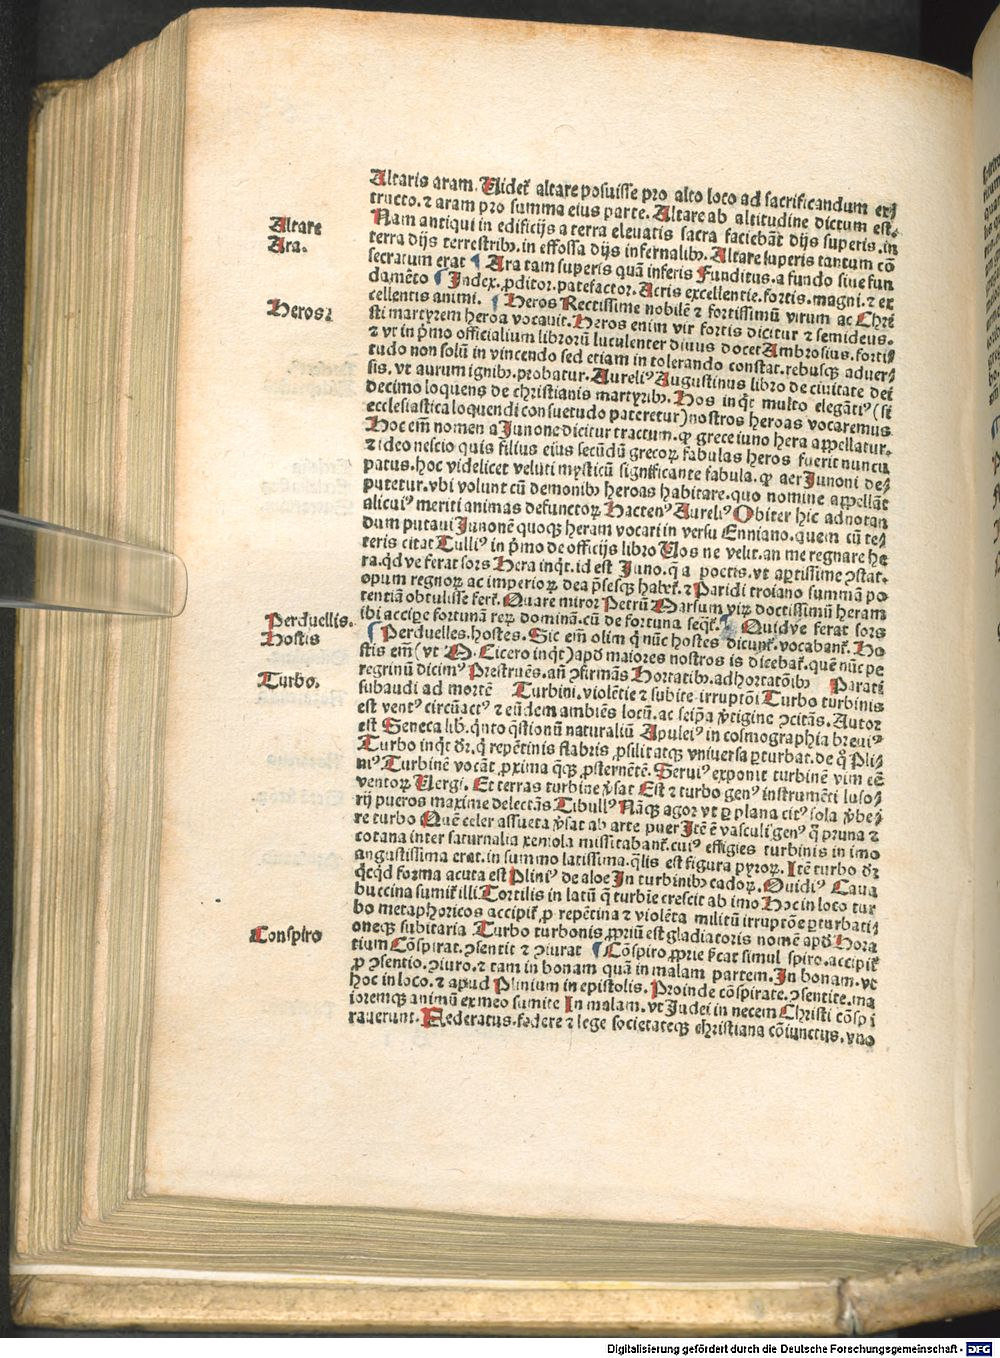 Altaris aram. Videt᷑ altare posuisse pro alto loco ad sacrificandum ex⸗
tructo. ⁊ aram pro summa eius parte. Altare ab altitudine dictum est.
Altare
Nam antiqui in edificijs a terra eleuatis sacra faciebāt dijs superis. in
Ara.
terra dijs terrestribꝰ. in effossa dijs infernalibꝰ. Altare superis tantum cō
secratum erat ¶ Ara tam superis quā inferis Funditus. a fundo siue fun
damēto ¶ Index. ꝓditor. patefactor. Acris excellentie. fortis. magni. ⁊ ex
cellentis animi. ¶ Heros Rectissime nobilē ⁊ fortissimū virum ac Chri
Heros:
sti martyrem heroa vocauit. Heros enim vir fortis dicitur ⁊ semideus.
⁊ vt in p̄mo officialium librorū luculenter diuus docet Ambrosius. forti⸗
tudo non solū in vincendo sed etiam in tolerando constat. rebusqꝫ aduer⸗
sis. vt aurum ignibꝰ. probatur. Aureliꝰ Augustinus libro de ciuitate dei
decimo loquens de christianis martyribꝰ. Hos inq̄t multo elegātiꝰ (si
ecclesiastica loquendi consuetudo pateretur) nostros heroas vocaremus
Hoc em̄ nomen a Junone dicitur tractum. ꝙ grece iuno hera appellatur.
⁊ ideo nescio quis filius eius secūdū grecoꝝ fabulas heros fuerit nuncu
patus. hoc videlicet veluti mysticū significante fabula. ꝙ aer Junoni de⸗
putetur. vbi volunt cū demonibꝰ heroas habitare. quo nomine appellāt
alicuiꝰ meriti animas defunctoꝝ Hactenꝰ Aureliꝰ Obiter hic adnotan
dum putaui Junonē quoqꝫ heram vocari in versu Enniano. quem cū ce⸗
teris citat Tulliꝰ in p̄mo de officijs libro Vos ne velit. an me regnare he
ra. qd ve ferat sors Hera inq̄t. id est Juno. q̄ a poetis. vt aptissime ꝯstat.
opum regnoꝝ ac imperioꝝ dea p̄sesqꝫ habet᷑. ⁊ Paridi troiano summā po
tentiā obtulisse fert᷑. Quare miror Petrū Marsum viꝝ doctissimū heram
ibi accipe fortunā reꝝ dominā. cū de fortuna seqt᷑. ¶ Quidve ferat sors
Perduellis.
¶ Perduelles. hostes. Sic em̄ olim q̄ nūc hostes dicunt᷑. vocabant᷑. Ho
Hostis
stis em̄ (vt M. Cicero inq̄t) apd maiores nostros is dicebat᷑. quē nūc pe
regrinū dicimꝰ Prestruēs. añ ꝯfirmās Hortatibꝰ. adhortatōibꝰ Parati
Turbo.
subaudi ad mortē Turbini. violētie ⁊ subite irruptōi Turbo turbinis
est ventꝰ circūactꝰ ⁊ eūdem ambiēs locū. ac seip̄a v̄tigine ꝯcitās. Autor
est Seneca lib. q̄nto q̄stionū naturaliū Apuleiꝰ in cosmographia breuiꝰ
Turbo inq̄t dr̄. q̄ repētinis flabris ꝓsilit atqꝫ vniuersa ꝑturbat. de q̄ Pli⸗
niꝰ Turbinē vocāt ꝓxima q̄qꝫ ꝓsternētē. Seruiꝰ exponit turbinē vim eē
ventoꝝ Vergi. Et terras turbine v̄sat Est ⁊ turbo genꝰ instrumēti luso⸗
rij pueros maxime delectās Tibullꝰ Nāqꝫ agor vt ꝑ plana citꝰ sola v̄be⸗
re turbo Quē celer assueta v̄sat ab arte puer Itē ē vasculi genꝰ q̄ pruna ⁊
cotana inter saturnalia xeniola missitabant᷑. cuiꝰ effigies turbinis in imo
angustissima erat. in summo latissima. q̄lis est figura pyroꝝ. Itē turbo dr̄
q̄cqd forma acuta est Pliniꝰ de aloe In turbinibꝰ cadoꝝ. Ouidiꝰ Caua
buccina sumit᷑ illi Tortilis in latū q̄ turbie crescit ab imo Hoc in loco tur
bo metaphoricos accipit᷑. ꝓ repētina ⁊ violēta militū irruptōe ꝑturbati⸗
Conspiro
oneqꝫ subitaria Turbo turbonis. ꝓpriū est gladiatoris nomē apd Hora
tium Cōspirat. ꝯsentit ⁊ ꝯiurat ¶ Cōspiro. ꝓprie s̄cat simul spiro. accipit᷑
ꝓ ꝯsentio. ꝯiuro. ⁊ tam in bonam quā in malam partem. In bonam. vt
hoc in loco. ⁊ apud Plinium in epistolis. Proinde cōspirate. ꝯsentite. ma
ioremqꝫ animū ex meo sumite In malam. vt Judei in necem Christi cōspi
rauerunt. Federatus. federe ⁊ lege societateqꝫ christiana cōiunctus. vno
Digitalisierung gefördert durch die Deutsche Forschungsgemeinschaft - DFG